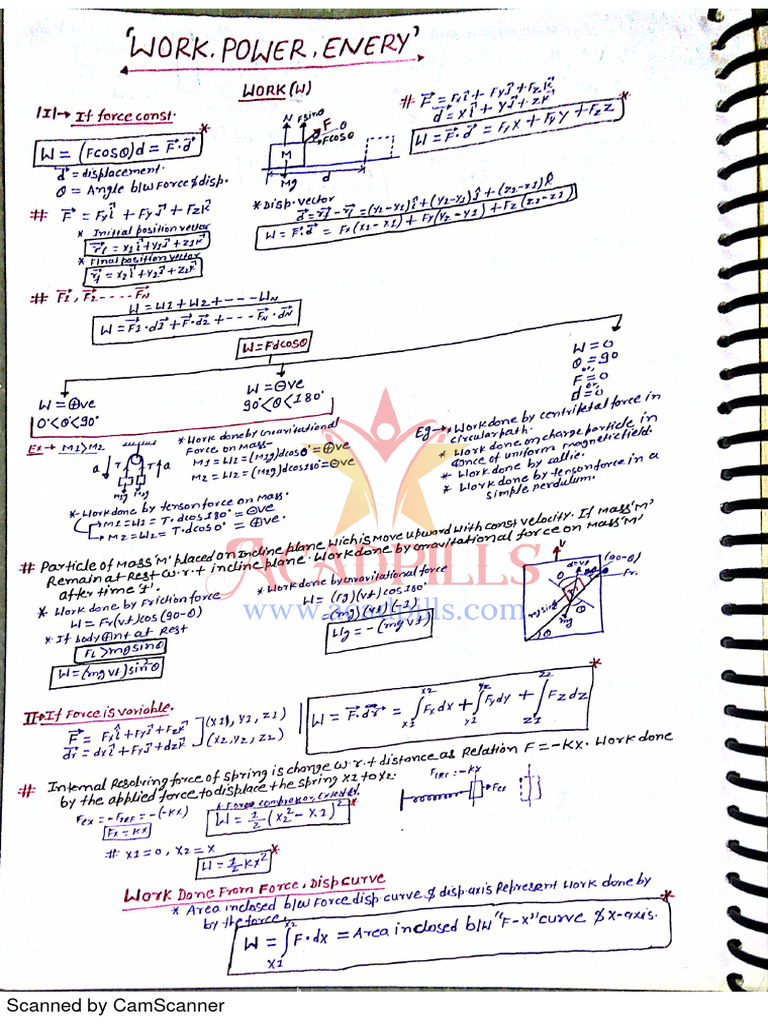 'WORK, POWER, ENERY'
WORK (W)
|I|→ If force const.
W = (Fcosθ)d = F⃗·d⃗
d⃗ = displacement.
θ = Angle b/w Force & disp.
N Fsinθ
F
θ
Fcosθ
M
Mg
d
# F⃗ = Fxî + Fyĵ + Fzk̂
d⃗ = xî + yĵ + zk̂
W = F⃗·d⃗ = Fxx + Fyy + Fzz
# F⃗ = Fxî + Fyĵ + Fzk̂
* Initial position vector
r⃗i = x1î + y1ĵ + z1k̂
* Final position vector
r⃗f = x2î + y2ĵ + z2k̂
* Disp. vector
W = F⃗·d⃗ = Fx(x2-x1) + Fy(y2-y1) + Fz(z2-z1)
# F⃗1, F⃗2 ---- F⃗N
W = W1 + W2 + --- WN
W = F⃗1·d⃗1 + F⃗·d⃗2 + --- F⃗N·d⃗N
W = Fdcosθ
W = ⊕ve
0°<θ<90°
W = ⊖ve
90°<θ<180°
W = 0
θ = 90
or,
F = 0
or,
d = 0
Ex→ M1>M2
a T T a
M1g M2g
* Work done by Gravitational
Force on Mass—
M1 = W1 = (M1g)dcos0° = ⊕ve
M2 = W2 = (M2g)dcos180° = ⊖ve
* Work done by tension force on Mass.
M1 = W1 = T·dcos180° = ⊖ve
M2 = W2 = T·dcos0° = ⊕ve.
Eg→ * Work done by centripetal force in
circular path.
* Work done on charge particle in
of uniform magnetic field.
* Work done by
* Work done by tension force in a
simple pendulum.
# Particle of Mass 'M' placed on Incline plane which is move upward with const velocity. If Mass 'M'
Remain at Rest w.r.t incline plane. Work done by Gravitational force on Mass 'M'
after time 't'.
ACADPILLS
www.acadpills.com
* Work done by Friction force
W = Fr(vt)cos(90-θ)
* If body at Rest
FL > mgsinθ
W = (mgvt)sin²θ
* Work done by Gravitational force
W = (Fg)(vt)cos180°
= (mg)(vt)(-1)
Wg = -(mgvt)
v
(90-θ)
Fr.
mgsinθ
mg
θ
II→ If Force is variable.
F⃗ = Fxî + Fyĵ + Fzk̂
dr⃗ = dxî + dyĵ + dzk̂
(x1, y1, z1)
(x2, y2, z2)
W = F⃗·dr⃗ = ∫x1x2 Fxdx + ∫y1y2 Fydy + ∫z1z2 Fzdz
# Internal Resolving force of spring is change w.r.t distance as Relation F = -Kx. Work done
by the applied force to displace the spring x1 to x2.
Fex = -FIRF = -(-Kx)
Fx = Kx
W = 1/2 (x2² - x1)²
FIRF = -Kx
Fex
# x1 = 0, x2 = x
W = 1/2 Kx²
WORK DONE FROM FORCE, DISP CURVE
* Area inclosed b/w Force disp. curve & disp. axis Represent Work done by
by the force.
W = ∫x1x2 F·dx = Area inclosed b/w "F-x" curve & x-axis.
Scanned by CamScanner